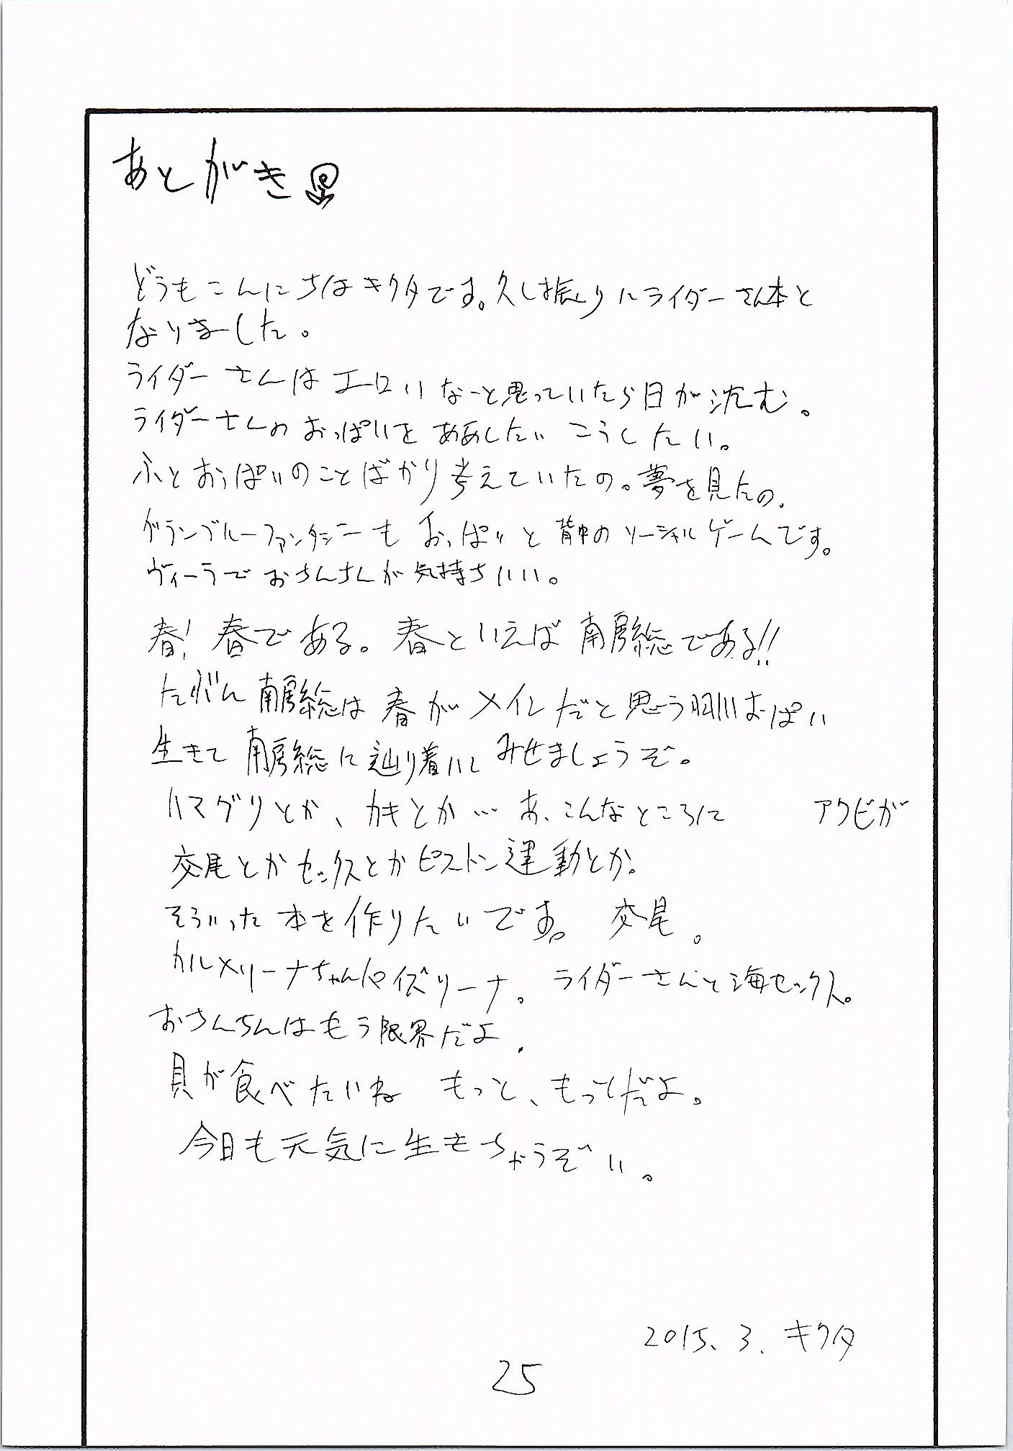 あとがき
どうもこんにちはキクタです。久し振りにライダーさん本と
なりました。
ライダーさんはエロいなーと思っていたら日が沈む。
ライダーさんのおっぱいをああしたいこうしたい。
ふとおっぱいのことばかり考えていたの。夢を見たの.
グランブルーファンタジーもおっぱいと背中のソーシャルゲームです。
ヴィーラでおさんちんが気持ちいい。
春!春である。春といえば南房総である!!
たぶん南房総は春がメインだと思う おっぱい
生きて南房総に辿り着いてみせましょうぞ。
ハマグリとか、カキとか… あ、こんなところに アワビが
交尾とかセックスとかピストン運動とか。
そういった本を作りたいです。 交尾。
カルメリーナちゃんパイズリーナ。 ライダーさんと海セックス。
おさんちんはもう限界だよ.
貝が食べたいね もっと、もっとだよ。
今日も元気に生きちゃうぞい。
2015.3.キクタ
25